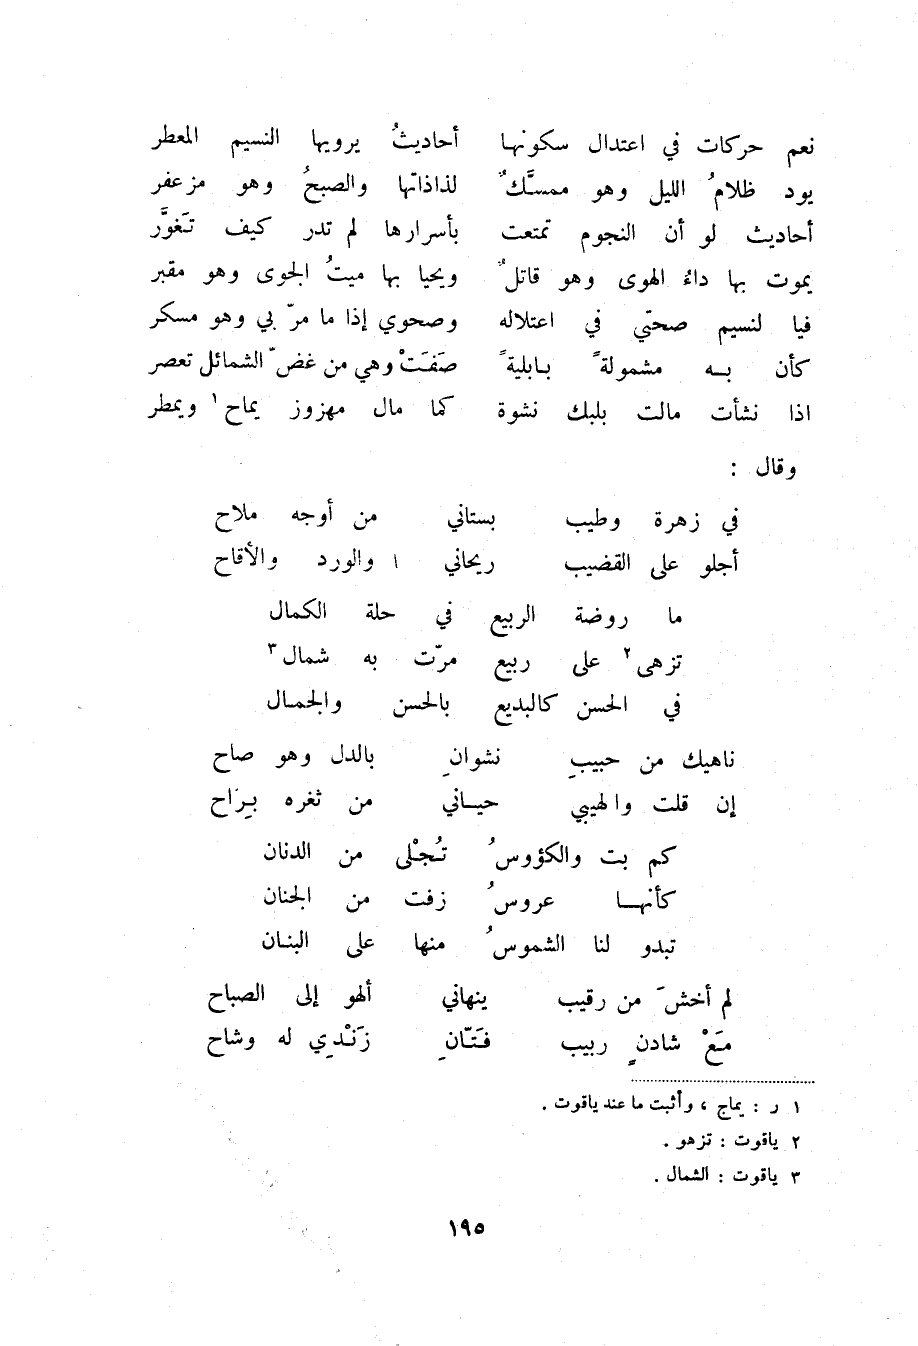 نعم حركات في اعتدال سكونها أحاديثُ يرويها النسيم المعطر
يود ظلامُ الليل وهو ممسَّكٌ لذاذاتها والصبحُ وهو مزعفر
أحاديث لو أن النجوم تمتعت بأسرارها لم تدر كيف تَغورَّ
يموت بها داءُ الهوى وهو قاتلٌ ويحيا بها ميتُ الجوى وهو مقبر
فيا لنسيم صحتي في اعتلاله وصحوي إذا ما مرّ بي وهو مسكر
كأن به مشمولةً بابليةً صَفَتْ وهي من غضّ الشمائل تعصر
اذا نشأت مالت بلبك نشوة كما مال مهزوز يماح ١ ويمطر
وقال :
في زهرة وطيب بستاني من أوجه ملاح
أجلو على القضيب ريحاني ١ والورد والأقاح
ما روضة الربيع في حلة الكمال
تزهى ٢ على ربيع مرّت به شمال ٣
في الحسن كالبديع بالحسن والجمال
ناهيك من حبيبٍ نشوانِ بالدل وهو صاح
إن قلت والهيبي حياني من ثغره بِرَاح
كم بت والكؤوسُ تُجْلى من الدنان
كأنها عروسُ زفت من الجنان
تبدو لنا الشموسُ منها على البنان
لم أخشَ من رقيب ينهاني ألهو إلى الصباح
مَعْ شادنٍ ربيب فَتّانِ زَنْدِي له وشاح
١ ر : يماج ، وأثبت ما عند ياقوت .
٢ ياقوت : تزهو .
٣ ياقوت : الشمال .
١٩٥